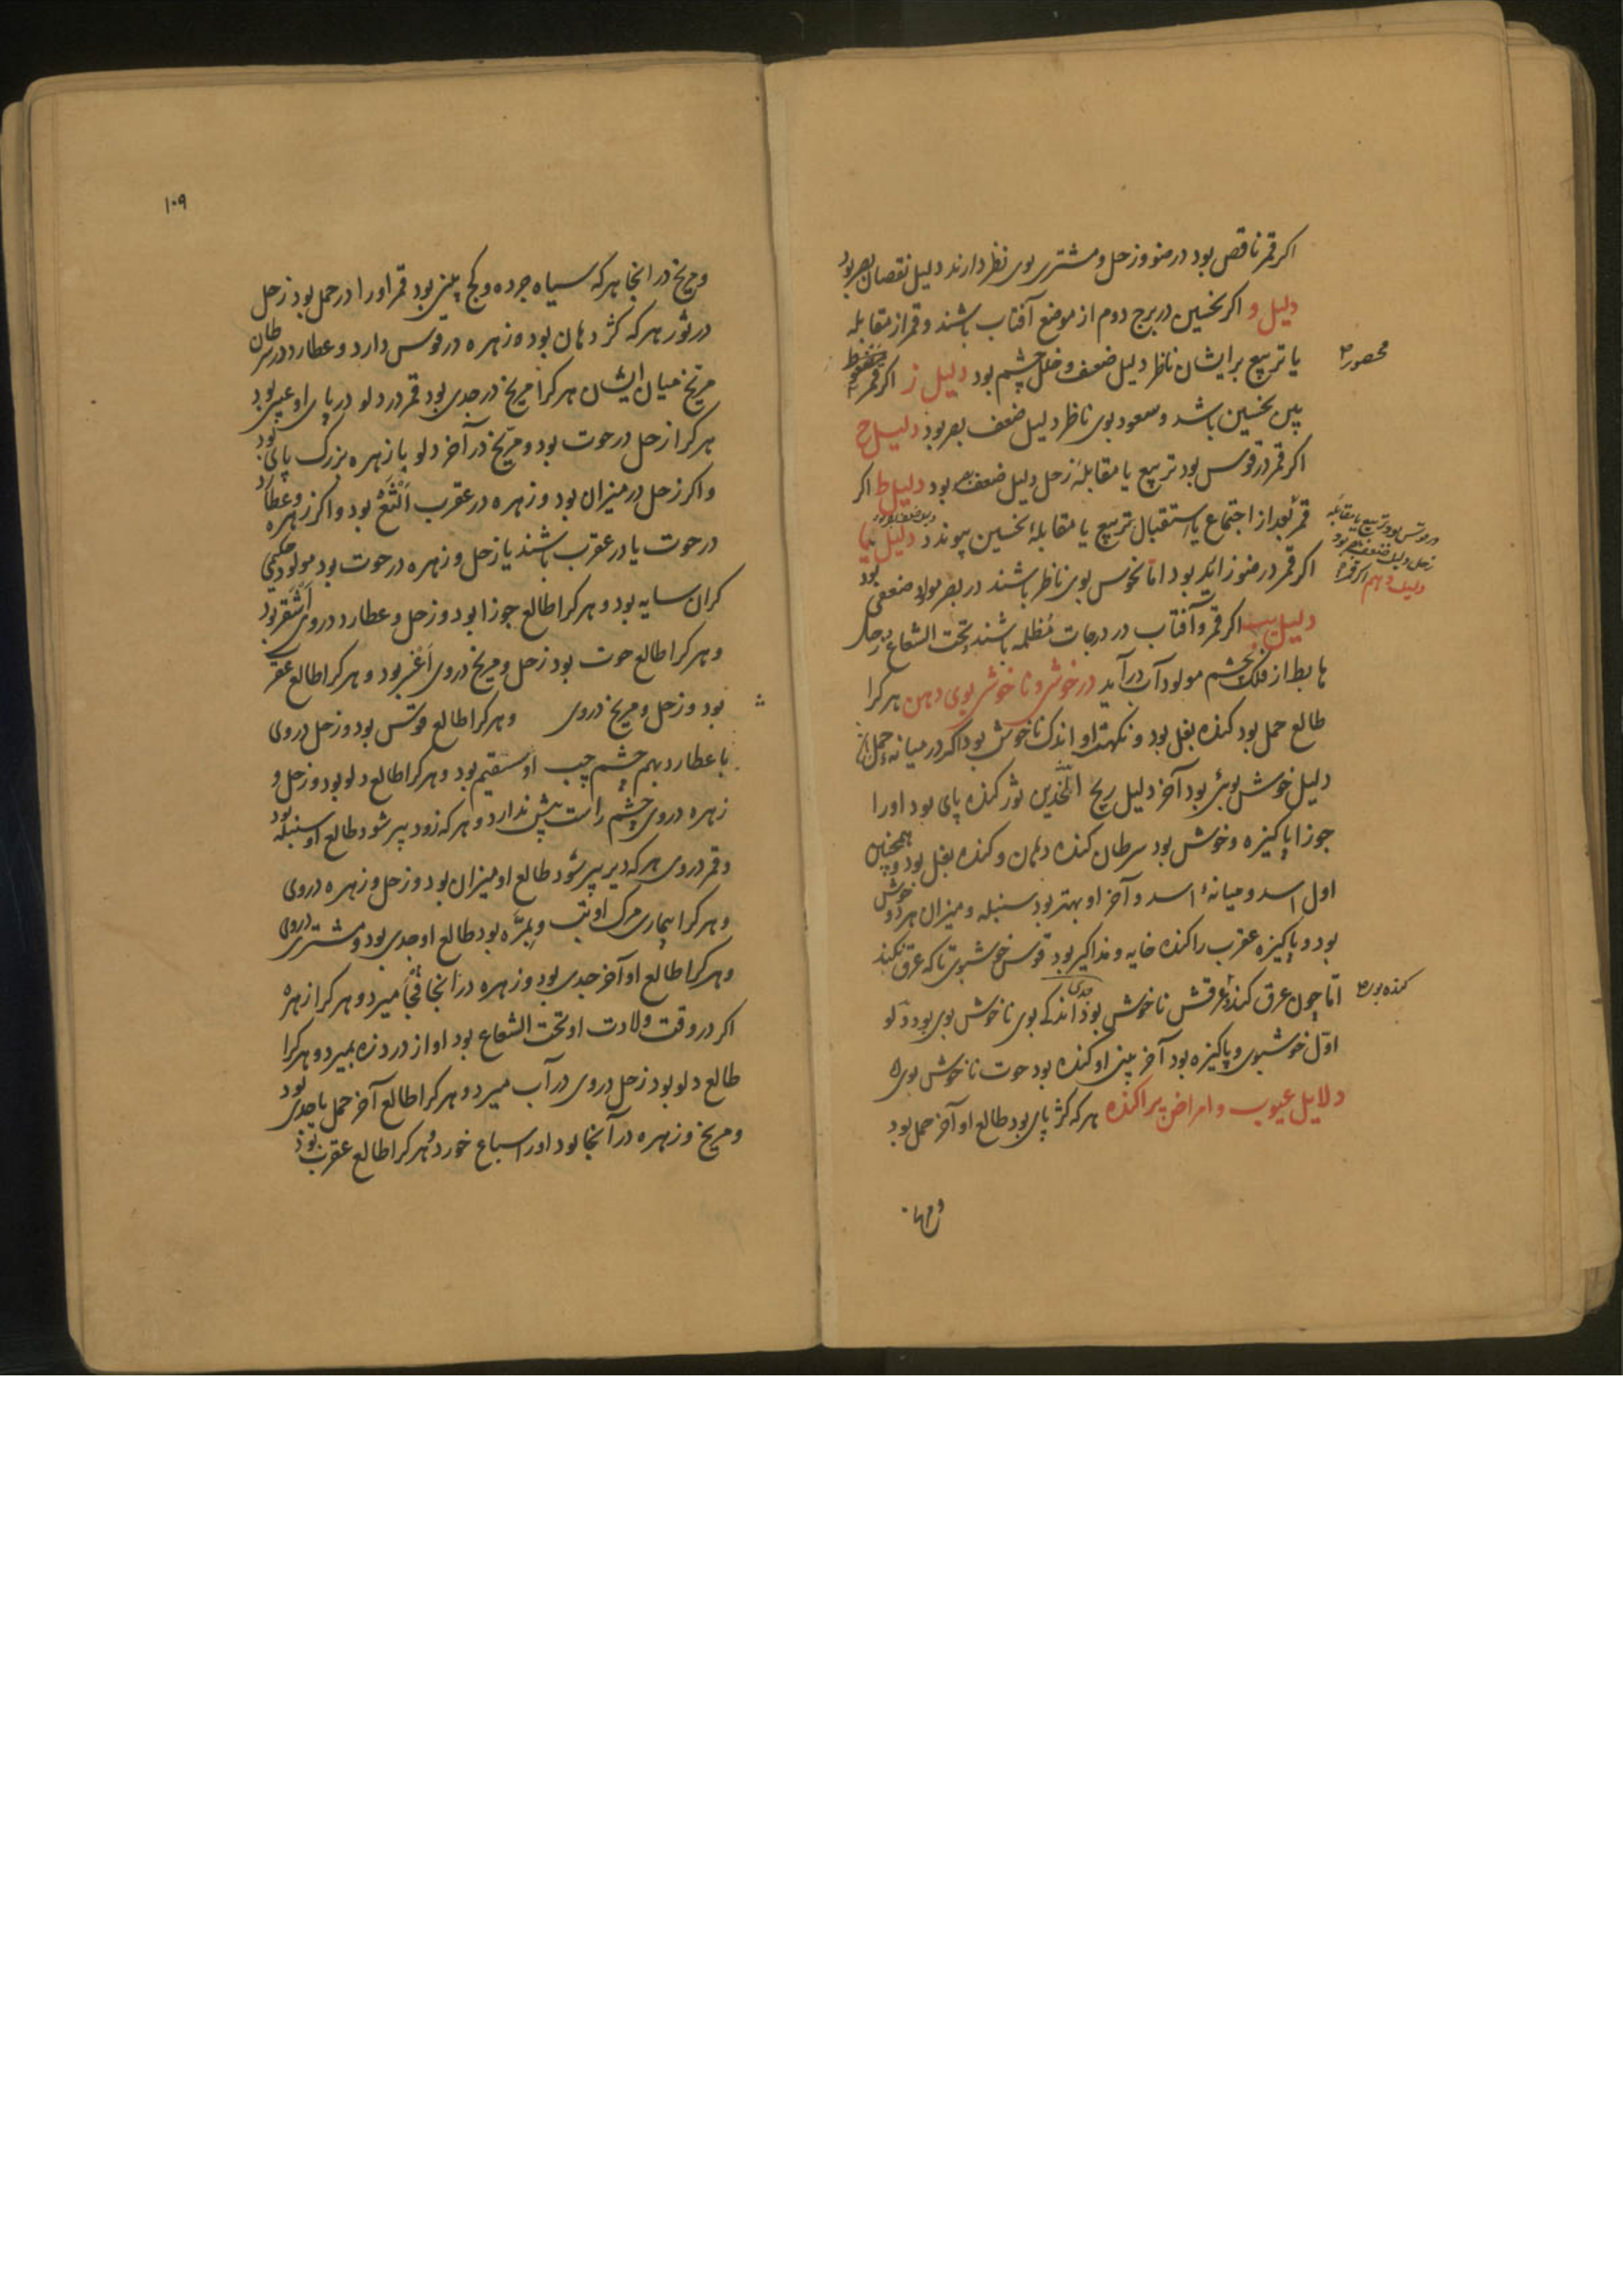 اکر قمر ناقص بود در ضو و زحل و مشتری بوی نظر دارند دلیل نقصان بصر بود
دلیل و اکر نحسین در برج دوم از موضع آفتاب باشند و قمر از مقابله
یا تربیع برایشان ناظر دلیل ضعف و خلل چشم بود دلیل ز اکر قمر
محصور
بین نحسین باشد و سعود بوی ناظر دلیل ضعف بصر بود دلیل ح
اکر قمر در قوس بود تربیع یا مقابلهٔ زحل دلیل ضعف بصر بود دلیل ط اکر
قمر بعد از اجتماع یا استقبال تربیع یا مقابلهٔ نحسین پیوندد دلیل یا
در قوس بود و تربیع یا مقابله
زحل دلیل ضعف بصر بود
دلیل دهم اکر قمر
اکر قمر در ضو زاید بود اما نحوس بوی ناظر باشند در بصر مولود ضعفی بود
دلیل یب اکر قمر و آفتاب در درجات مظلمه باشند تحت الشعاع و زحل
هابط از فلک بچشم مولود آب درآید در خوشی و ناخوشی بوی دهن هر کرا
طالع حمل بود کنده بغل بود و نکهت او اندک ناخوش بود اکر در میانهٔ حمل
دلیل خوش بوئی بود آخر دلیل ریح الخدین ثور کنده پای بود او را
جوزا پاکیزه و خوش بود سرطان کنده دهن و کنده بغل بود و همچنین
اول اسد و میانهٔ اسد و آخر او بهتر بود سنبله و میزان هر دو خوش
بود و پاکیزه عقرب را کنده خایه و مذاکیر بود قوس خوشبوی تا که عرق نکند
اما چون عرق کند عرقش ناخوش بود جدی اندکی بوی ناخوش بوی بود دلو
کنده بود
اول خوشبوی و پاکیزه بود آخر بینی او کنده بود حوت ناخوش بوی
دلایل عیوب و امراض پراکنده هر که کژ پای بود طالع او آخر حمل بود
۱۰۹
و مریخ در انجا هر که سیاه جرده و کج بینی بود قمر او را در حمل بود زحل
در ثور هر که کژ دهان بود و زهره در قوس دارد و عطارد در سرطان
مریخ میان ایشان هر کرا مریخ در جدی بود قمر در دلو در پای او عیبی بود
هر کرا زحل در حوت بود و مریخ در آخر دلو با زهره بزرک پای بود
و اکر زحل در میزان بود و زهره در عقرب الثغ بود و اکر زهره و عطارد
در حوت یا در عقرب باشند یا زحل و زهره در حوت بود مولود
کران سایه بود و هر کرا طالع جوزا بود و زحل و عطارد در وی اشقر بود
و هر کرا طالع حوت بود زحل و مریخ در وی اغبر بود و هر کرا طالع عقرب
بود و زحل و مریخ در وی و هر کرا طالع قوس بود و زحل در وی
با عطارد بهم چشم چپ او سقیم بود و هر کرا طالع دلو بود و زحل و
زهره در وی چشم راست بیش ندارد و هر که زود پیر شود طالع او سنبله بود
و قمر در وی هر که دیر پیر شود طالع او میزان بود و زحل و زهره در وی
و هر کرا بیماری مرک او تب و بمره بود طالع او جدی بود و مشتری در وی
و هر کرا طالع او آخر جدی بود و زهره در انجا فجأ میرد و هر کرا زهره
اکر در وقت ولادت او تحت الشعاع بود او از درد زه بمیرد و هر کرا
طالع دلو بود زحل در وی در آب میرد و هر کرا طالع آخر حمل یا جدی بود
و مریخ و زهره در آنجا بود او را سباع خورد و هر کرا طالع عقرب بود